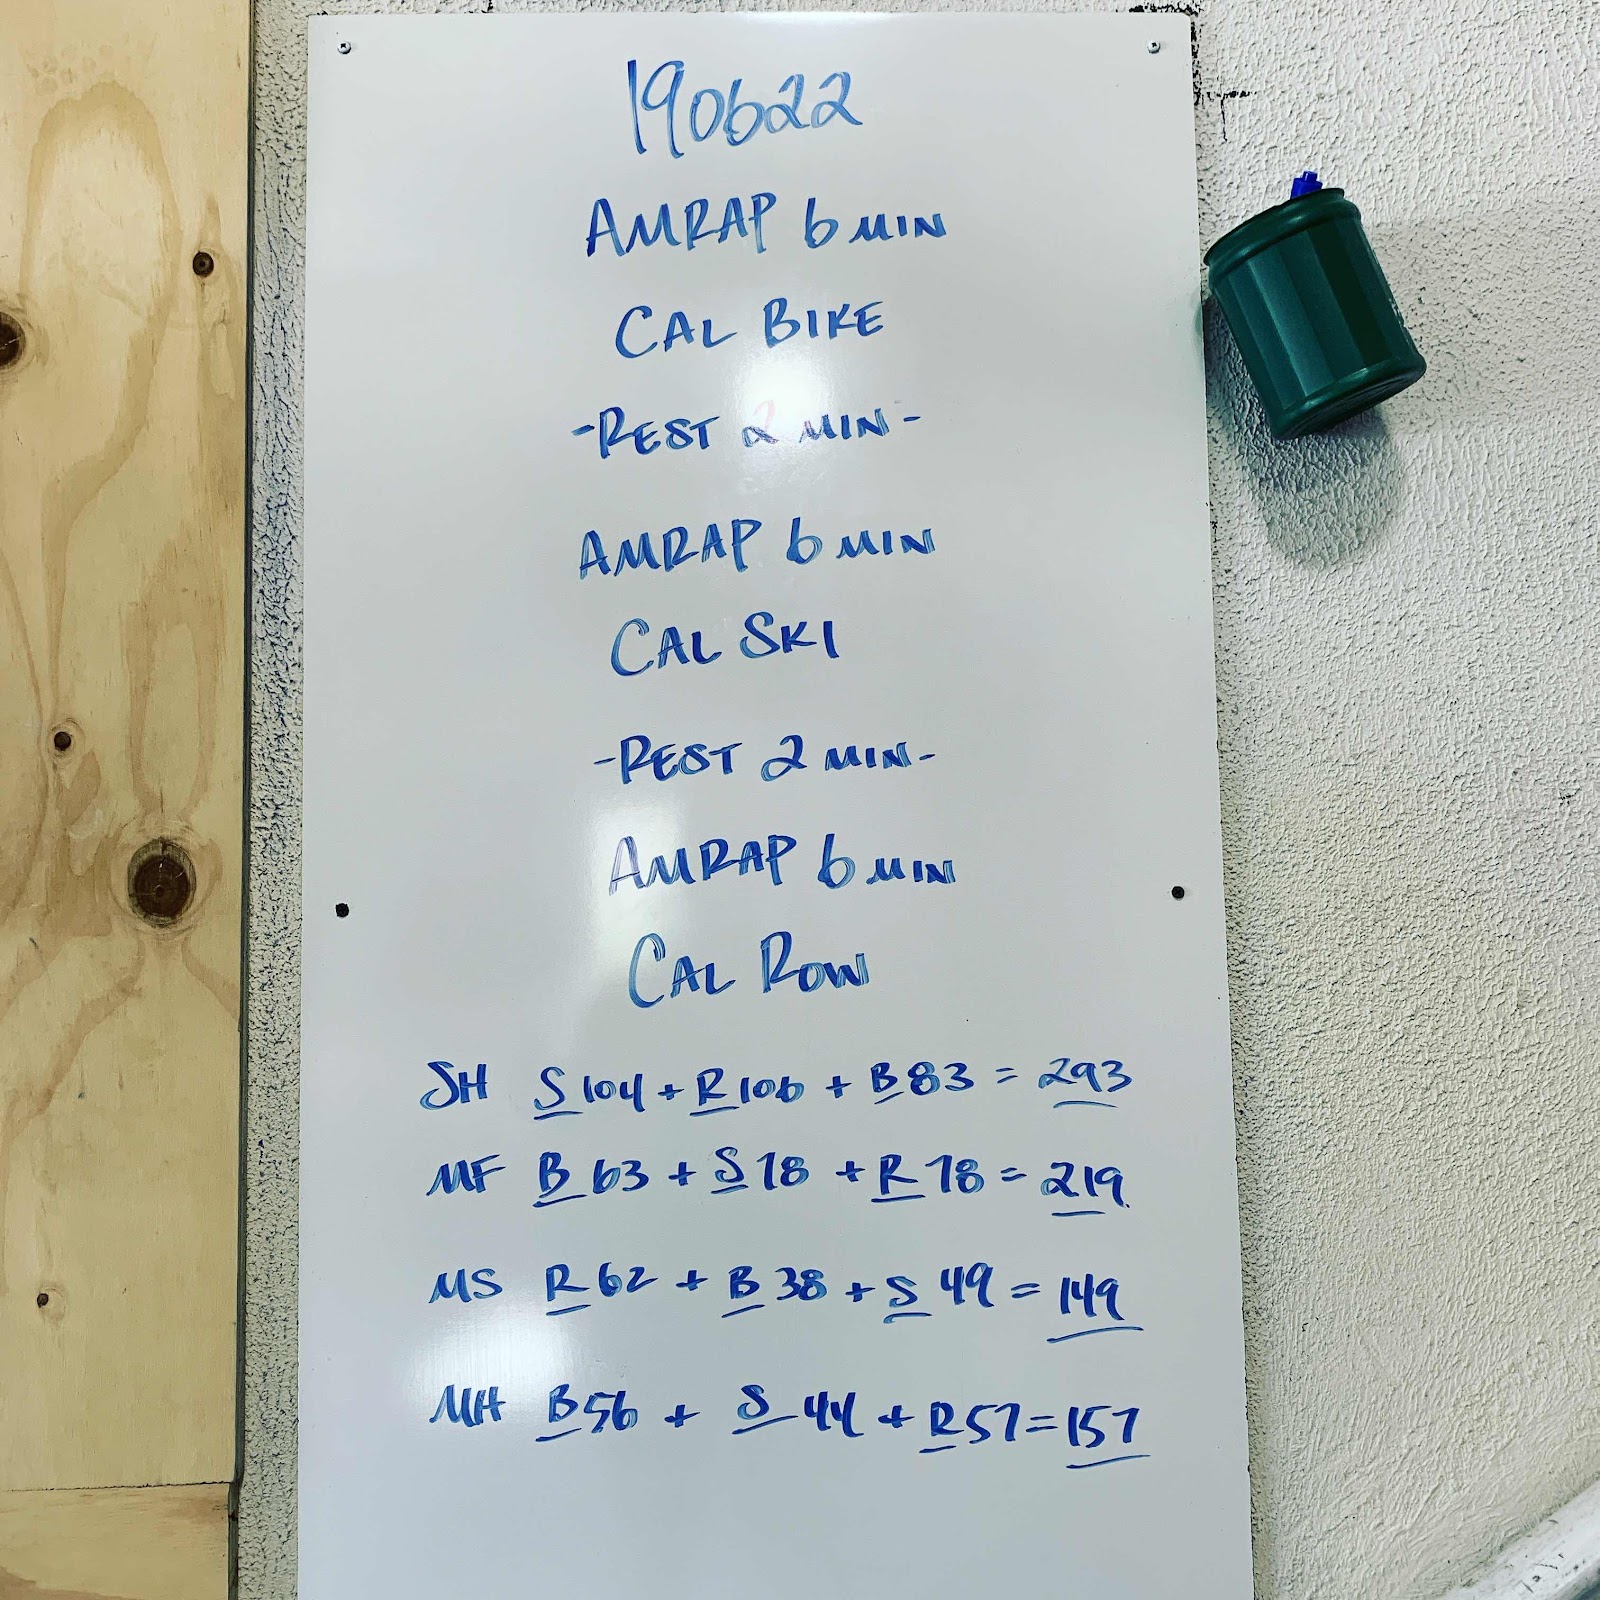 190622
AMRAP 6 MIN
CAL BIKE
-REST 2 MIN-
AMRAP 6 MIN
CAL SKI
-REST 2 MIN-
AMRAP 6 MIN
CAL ROW
SH S 104 + R 106 + B 83 = 293
MF B 63 + S 78 + R 78 = 219
MS R 62 + B 38 + S 49 = 149
MH B 56 + S 44 + R 57 = 157